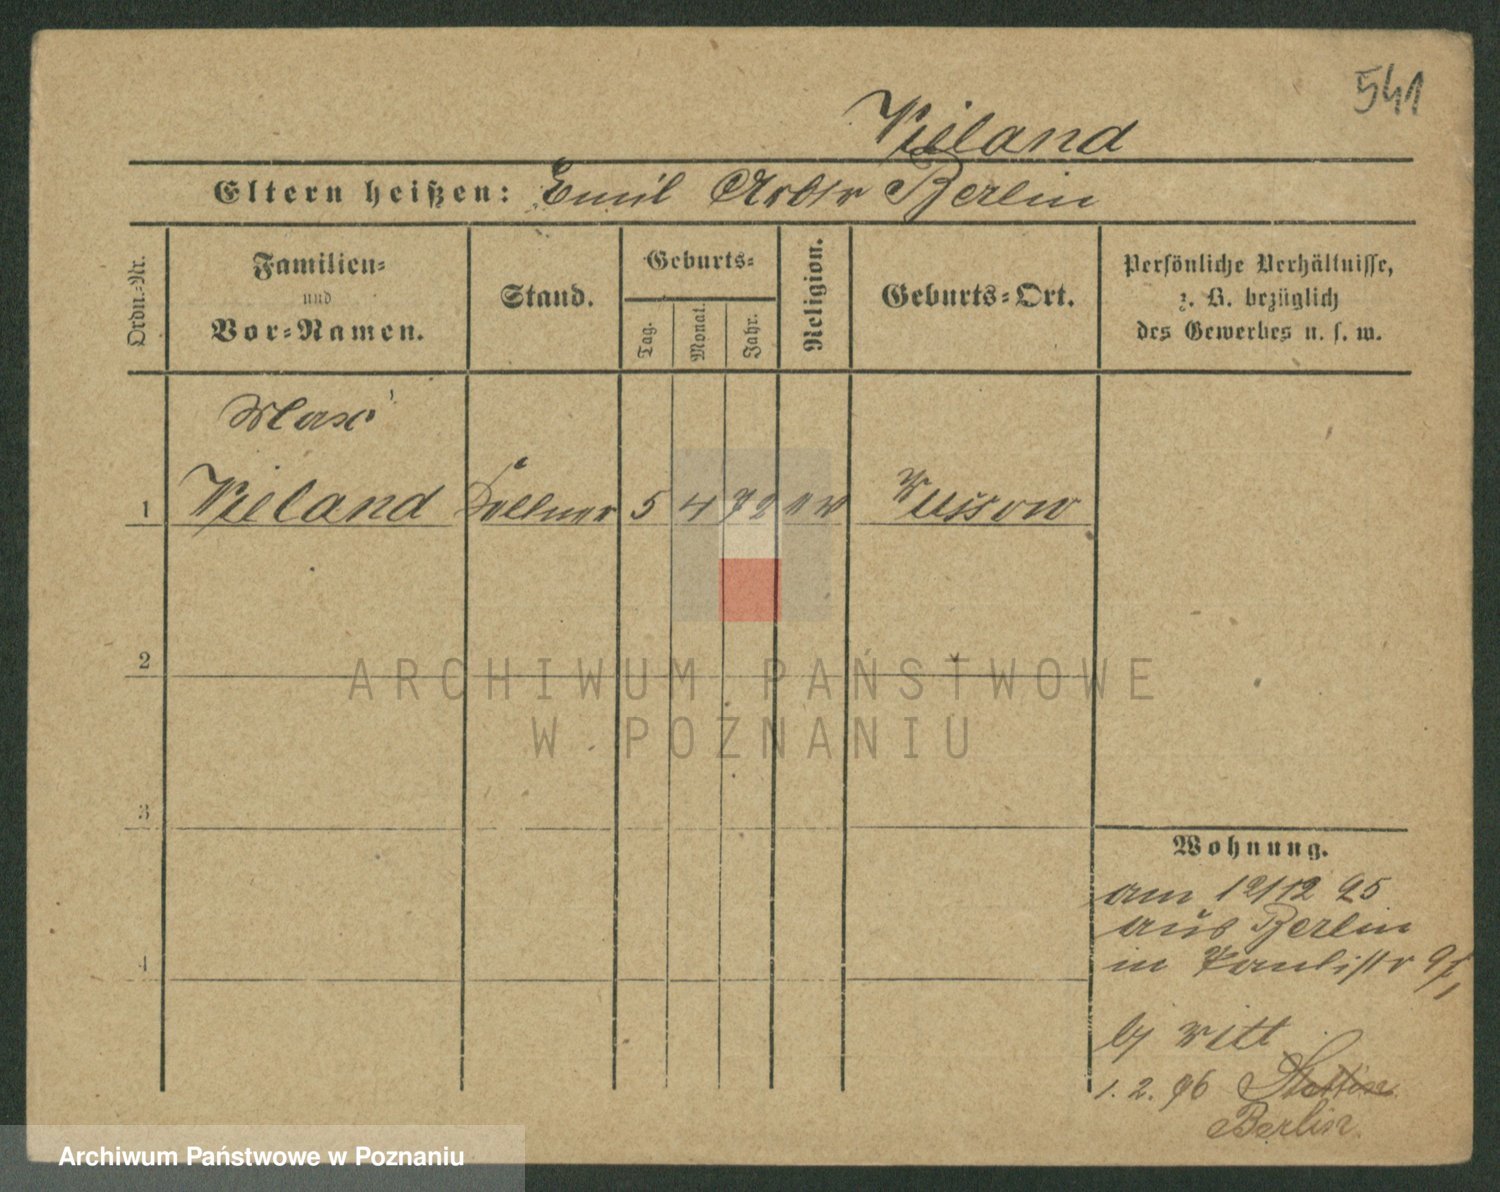 541
Wieland
Eltern heißen: Emil Arbtr Berlin
Ordn.-Nr.
Familien-
und
Vor-Namen.
Stand.
Geburts-
Tag.
Monat.
Jahr.
Religion.
Geburts-Ort.
Persönliche Verhältnisse,
z. B. bezüglich
des Gewerbes u. s. w.
Max
1 Wieland Kellner 5 4 72 ev Wussow
2
3
4
Wohnung.
am 12/12 95
aus Berlin
in Paulistr 9/1
bj Witt
1. 2. 96 Stettin
Berlin.
ARCHIWUM PAŃSTWOWE
W POZNANIU
Archiwum Państwowe w Poznaniu